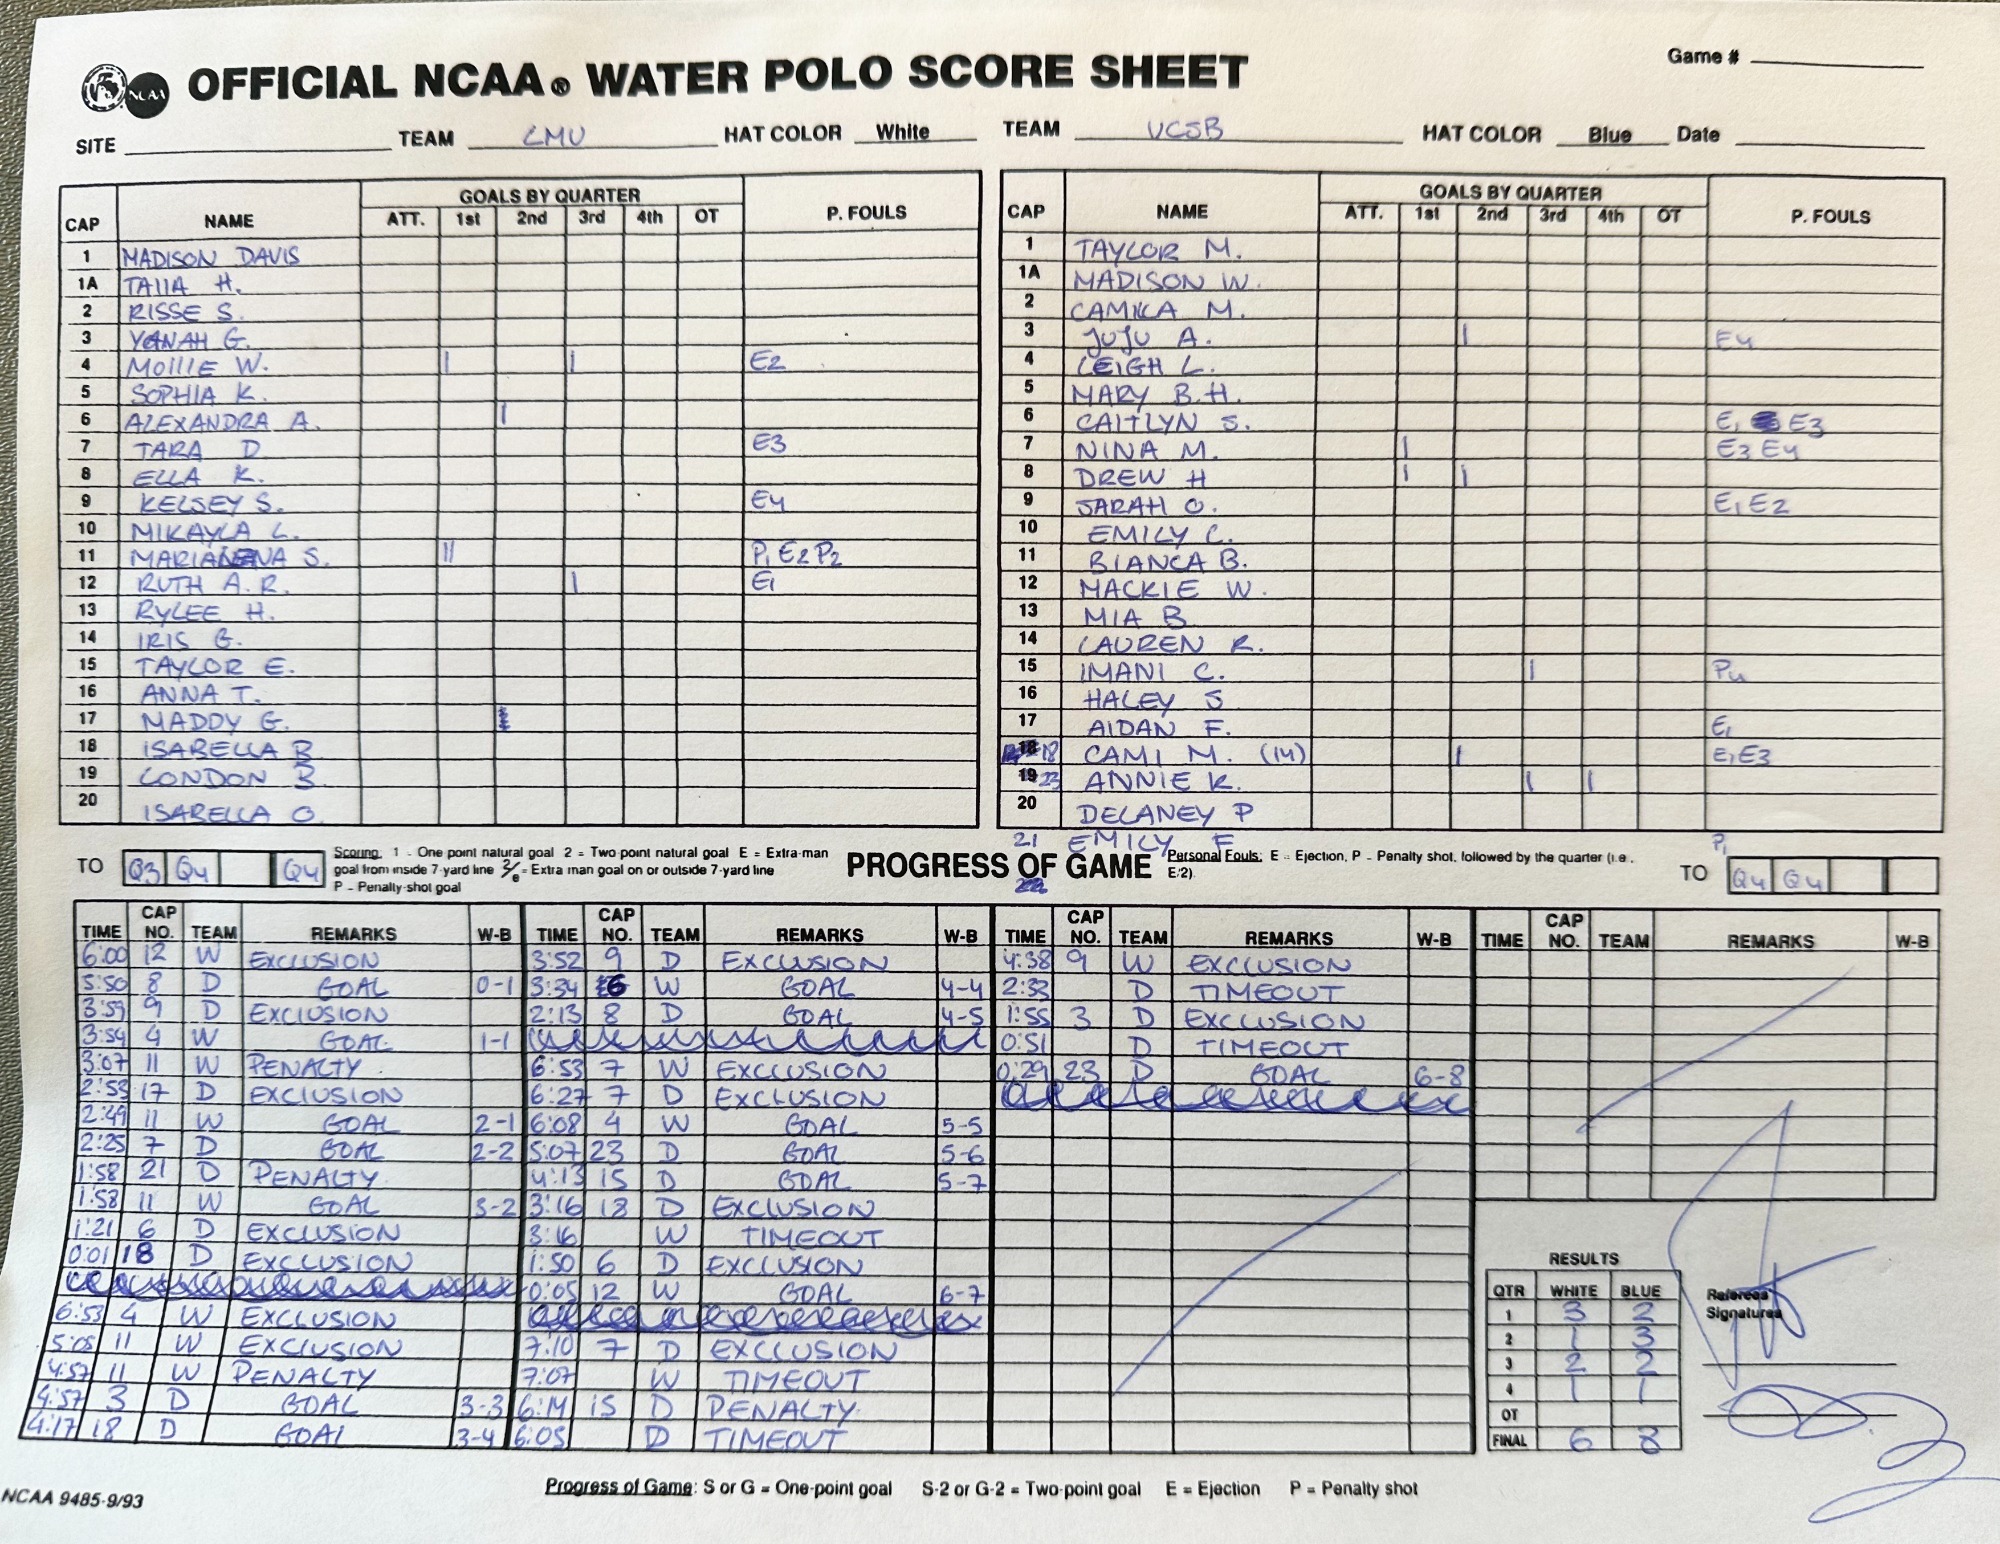 OFFICIAL NCAA® WATER POLO SCORE SHEET
Game #
SITE TEAM LMU HAT COLOR White TEAM UCSB HAT COLOR Blue Date
CAP NAME GOALS BY QUARTER P. FOULS
ATT. 1st 2nd 3rd 4th OT
1 MADISON DAVIS
1A TAIIA H.
2 RISSE S.
3 YANAH G.
4 MOLLIE W. | | E2
5 SOPHIA K.
6 ALEXANDRA A. |
7 TARA D E3
8 ELLA K.
9 KELSEY S. E4
10 MIKAYLA L.
11 S. || P1 E2 P2
12 RUTH A.R. | E1
13 RYLEE H.
14 IRIS G.
15 TAYLOR E.
16 ANNA T.
17 MADDY G.
18 ISABELLA B
19 LONDON B.
20 ISABELLA O.
CAP NAME GOALS BY QUARTER P. FOULS
ATT. 1st 2nd 3rd 4th OT
1 TAYLOR M.
1A MADISON W.
2 CAMILA M.
3 JUJU A. | E4
4 LEIGH L.
5 MARY B.H.
6 CAITLYN S. E1 E3
7 NINA M. | E3 E4
8 DREW H | |
9 SARAH O. E1 E2
10 EMILY C.
11 BIANCA B.
12 MACKIE W.
13 MIA B
14 LAUREN R.
15 IMANI C. | P4
16 HALEY S
17 AIDAN F. E1
18 18 CAMI M. (14) | E1 E3
19 23 ANNIE K. | |
20 DELANEY P
21 EMILY F P1
TO Q3 Q4 Q4
Scoring: 1 - One point natural goal 2 = Two-point natural goal E = Extra-man
goal from inside 7-yard line 2/e = Extra man goal on or outside 7-yard line
P - Penalty-shot goal
PROGRESS OF GAME
Personal Fouls: E = Ejection, P - Penalty shot, followed by the quarter (i.e.,
E:2).
TO Q4 Q4
TIME CAP NO. TEAM REMARKS W-B
6:00 12 W EXCLUSION
5:50 8 D GOAL 0-1
3:59 9 D EXCLUSION
3:54 4 W GOAL 1-1
3:07 11 W PENALTY
2:53 17 D EXCLUSION
2:49 11 W GOAL 2-1
2:25 7 D GOAL 2-2
1:58 21 D PENALTY
1:58 11 W GOAL 3-2
1:21 6 D EXCLUSION
0:01 18 D EXCLUSION
6:53 4 W EXCLUSION
5:05 11 W EXCLUSION
4:57 11 W PENALTY
4:57 3 D GOAL 3-3
4:17 18 D GOAL 3-4
TIME CAP NO. TEAM REMARKS W-B
3:52 9 D EXCLUSION
3:34 6 W GOAL 4-4
2:13 8 D GOAL 4-5
6:53 7 W EXCLUSION
6:27 7 D EXCLUSION
6:08 4 W GOAL 5-5
5:07 23 D GOAL 5-6
4:13 15 D GOAL 5-7
3:16 18 D EXCLUSION
3:16 W TIMEOUT
1:50 6 D EXCLUSION
0:05 12 W GOAL 6-7
7:10 7 D EXCLUSION
7:07 W TIMEOUT
6:14 15 D PENALTY
6:05 D TIMEOUT
TIME CAP NO. TEAM REMARKS W-B
4:38 9 W EXCLUSION
2:33 D TIMEOUT
1:55 3 D EXCLUSION
0:51 D TIMEOUT
0:29 23 D GOAL 6-8
TIME CAP NO. TEAM REMARKS W-B
RESULTS
QTR WHITE BLUE
1 3 2
2 1 3
3 2 2
4 1 1
OT
FINAL 6 8
Referees
Signatures
Progress of Game: S or G = One-point goal S-2 or G-2 = Two-point goal E = Ejection P = Penalty shot
NCAA 9485-9/93